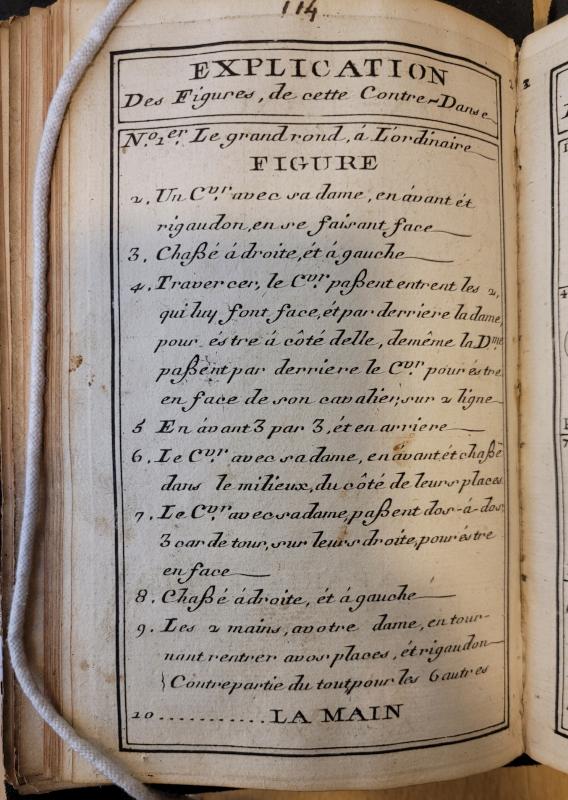 114
EXPLICATION
Des Figures, de cette Contre-Danse
N.º1er. Le grand rond, á L'ordinaire
FIGURE
2. Un Cvr. avec sa dame, en ávant ét
rigaudon, en se faisant face
3. Chaßé á droite, ét á gauche
4. Travercer, le Cvr. paßent entrent les 2,
qui luy font face, ét par derriere la dame,
pour éstre á côté delle, demême la Dme
paßent par derriere le Cvr. pour éstre
en face de son cavalier, sur 2 ligne
5 En ávant 3 par 3, ét en arriere
6. Le Cvr. avec sa dame, en ávant ét chaßé
dans le milieux, du côté de leurs places
7. Le Cvr. avec sa dame, paßent dos-á-dos,
3 car de tour, sur leurs droite, pour éstre
en face
8. Chaßé ádroite, ét á gauche
9. Les 2 mains, avotre dame, en tour-
nant rentrer avos places, ét rigaudon
Contrepartie du tout, pour les 6 autres
10 ........... LA MAIN